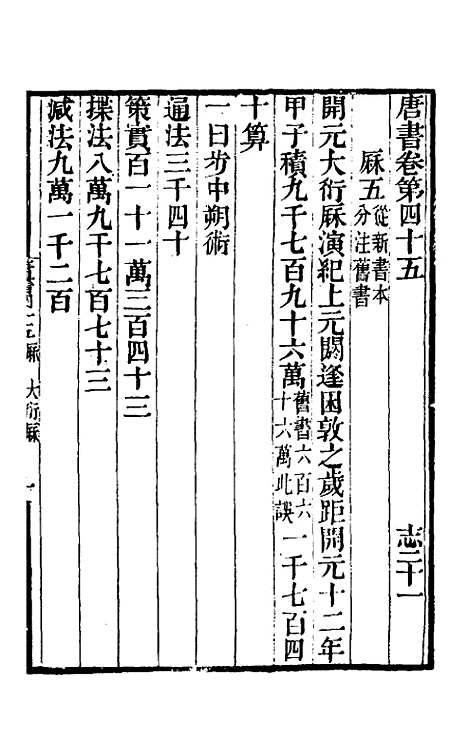 唐書卷第四十五 志二十一
厤五從新書本分注舊書
開元大衍厤演紀上元閼逢困敦之歲距開元十二年
甲子積九千七百九十六萬舊書六百六十六萬此誤一千七百四
十算
一曰步中朔術
通法三千四十
策實百一十一萬三百四十三
揲法八萬九千七百七十三
減法九萬一千二百
大衍厤 一